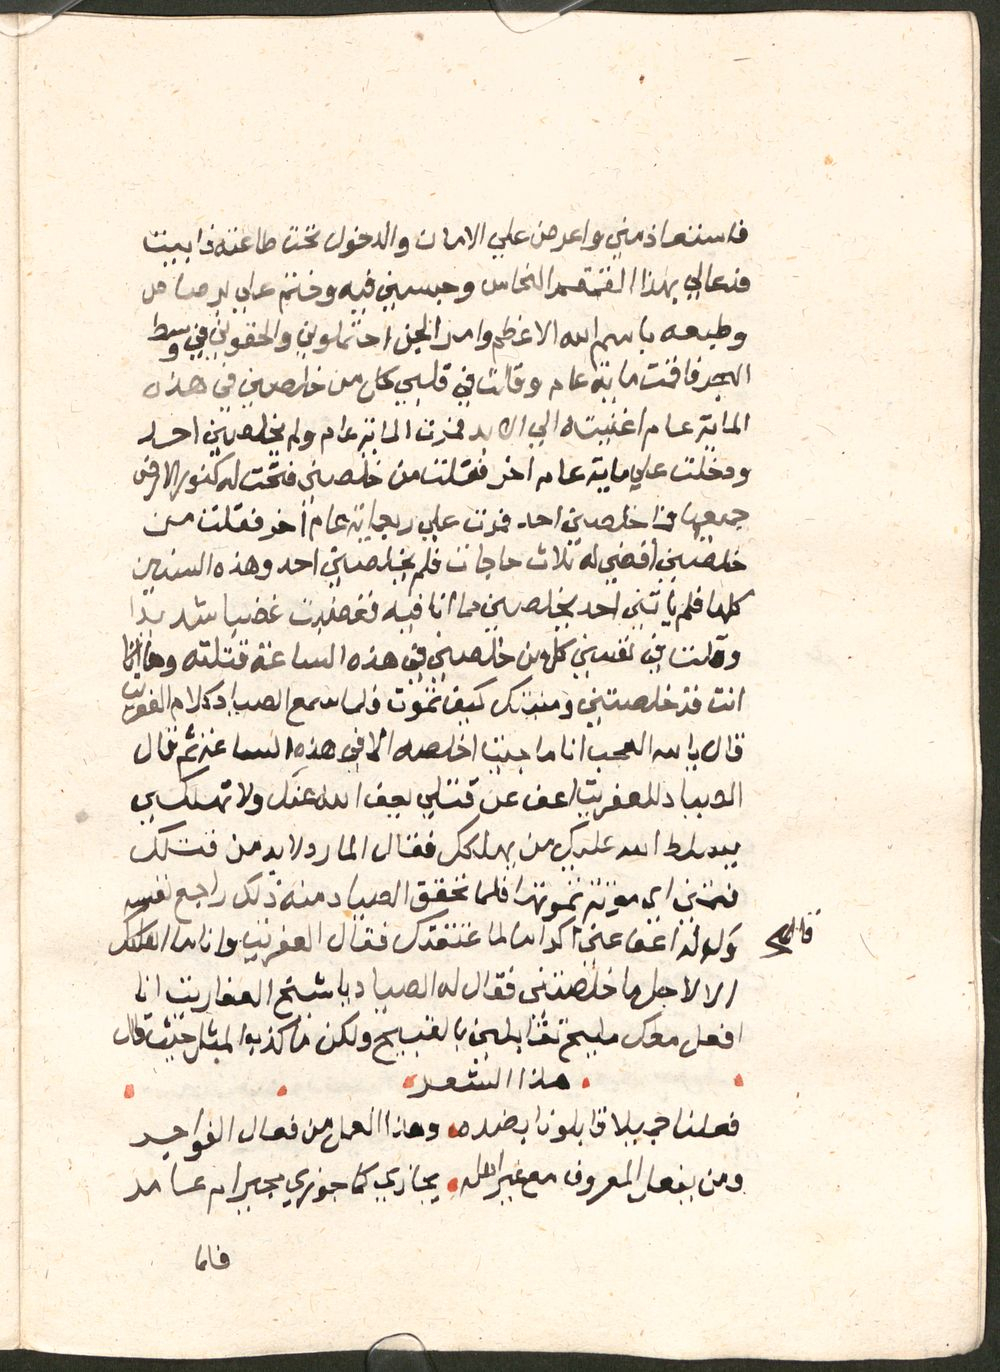 فاستعاذ مني واعرض علي الامان والدخول تحت طاعته فابيت
فدعا لي بهذا القمقم النحاس وحبسني فيه وختم علي بالرصاص
وطبعه باسم الله الاعظم وامر الجن احتملوني والقوني في وسط
البحر فاقمت ماية عام وقلت في قلبي كل من خلصني في هذه
الماية عام اغنيته الي الابد فمرت الماية عام ولم يخلصني احد
ودخلت علي ماية عام اخر فقلت من خلصني فتحت له كنوز الارض
جميعها فما خلصني احد فمرت علي ربعماية عام اخر فقلت من
خلصني اقضي له ثلاث حاجات فلم يخلصني احد وهذه السنين
كلها فلم ياتني احد يخلصني مما انا فيه فغضبت غضبا شديدا
وقلت في نفسي كل من خلصني في هذه الساعة قتلته وها
انت قد خلصتني ومنيتك كيف تموت فلما سمع الصياد كلام العفريت
قال يا لله العجب انا ما جيت اخلصه الا في هذه الساعة ثم قال
الصياد للعفريت اعف عن قتلي يعف الله عنك ولا تهلكني
يسلط الله عليك من يهلكك فقال المارد لا بد من قتلك
فتمني اي موتة تموتها فلما تحقق الصياد منه ذلك راجع نفسه
وقال له اعف عني اكراما لما عتقتك فقال العفريت وانا ما اقتلك
الا لاجل ما خلصتني فقال له الصياد يا شيخ العفاريت انا
افعل معك مليح تقابلني بالقبيح ولكن ما كذب المثل حيث قال
هذا الشعر
فعلنا جميلا قابلونا بضده وهذا لعمري من فعال الفواجر
ومن يفعل المعروف مع غير اهله يجازي كما جوزي مجير ام عامر
فلما